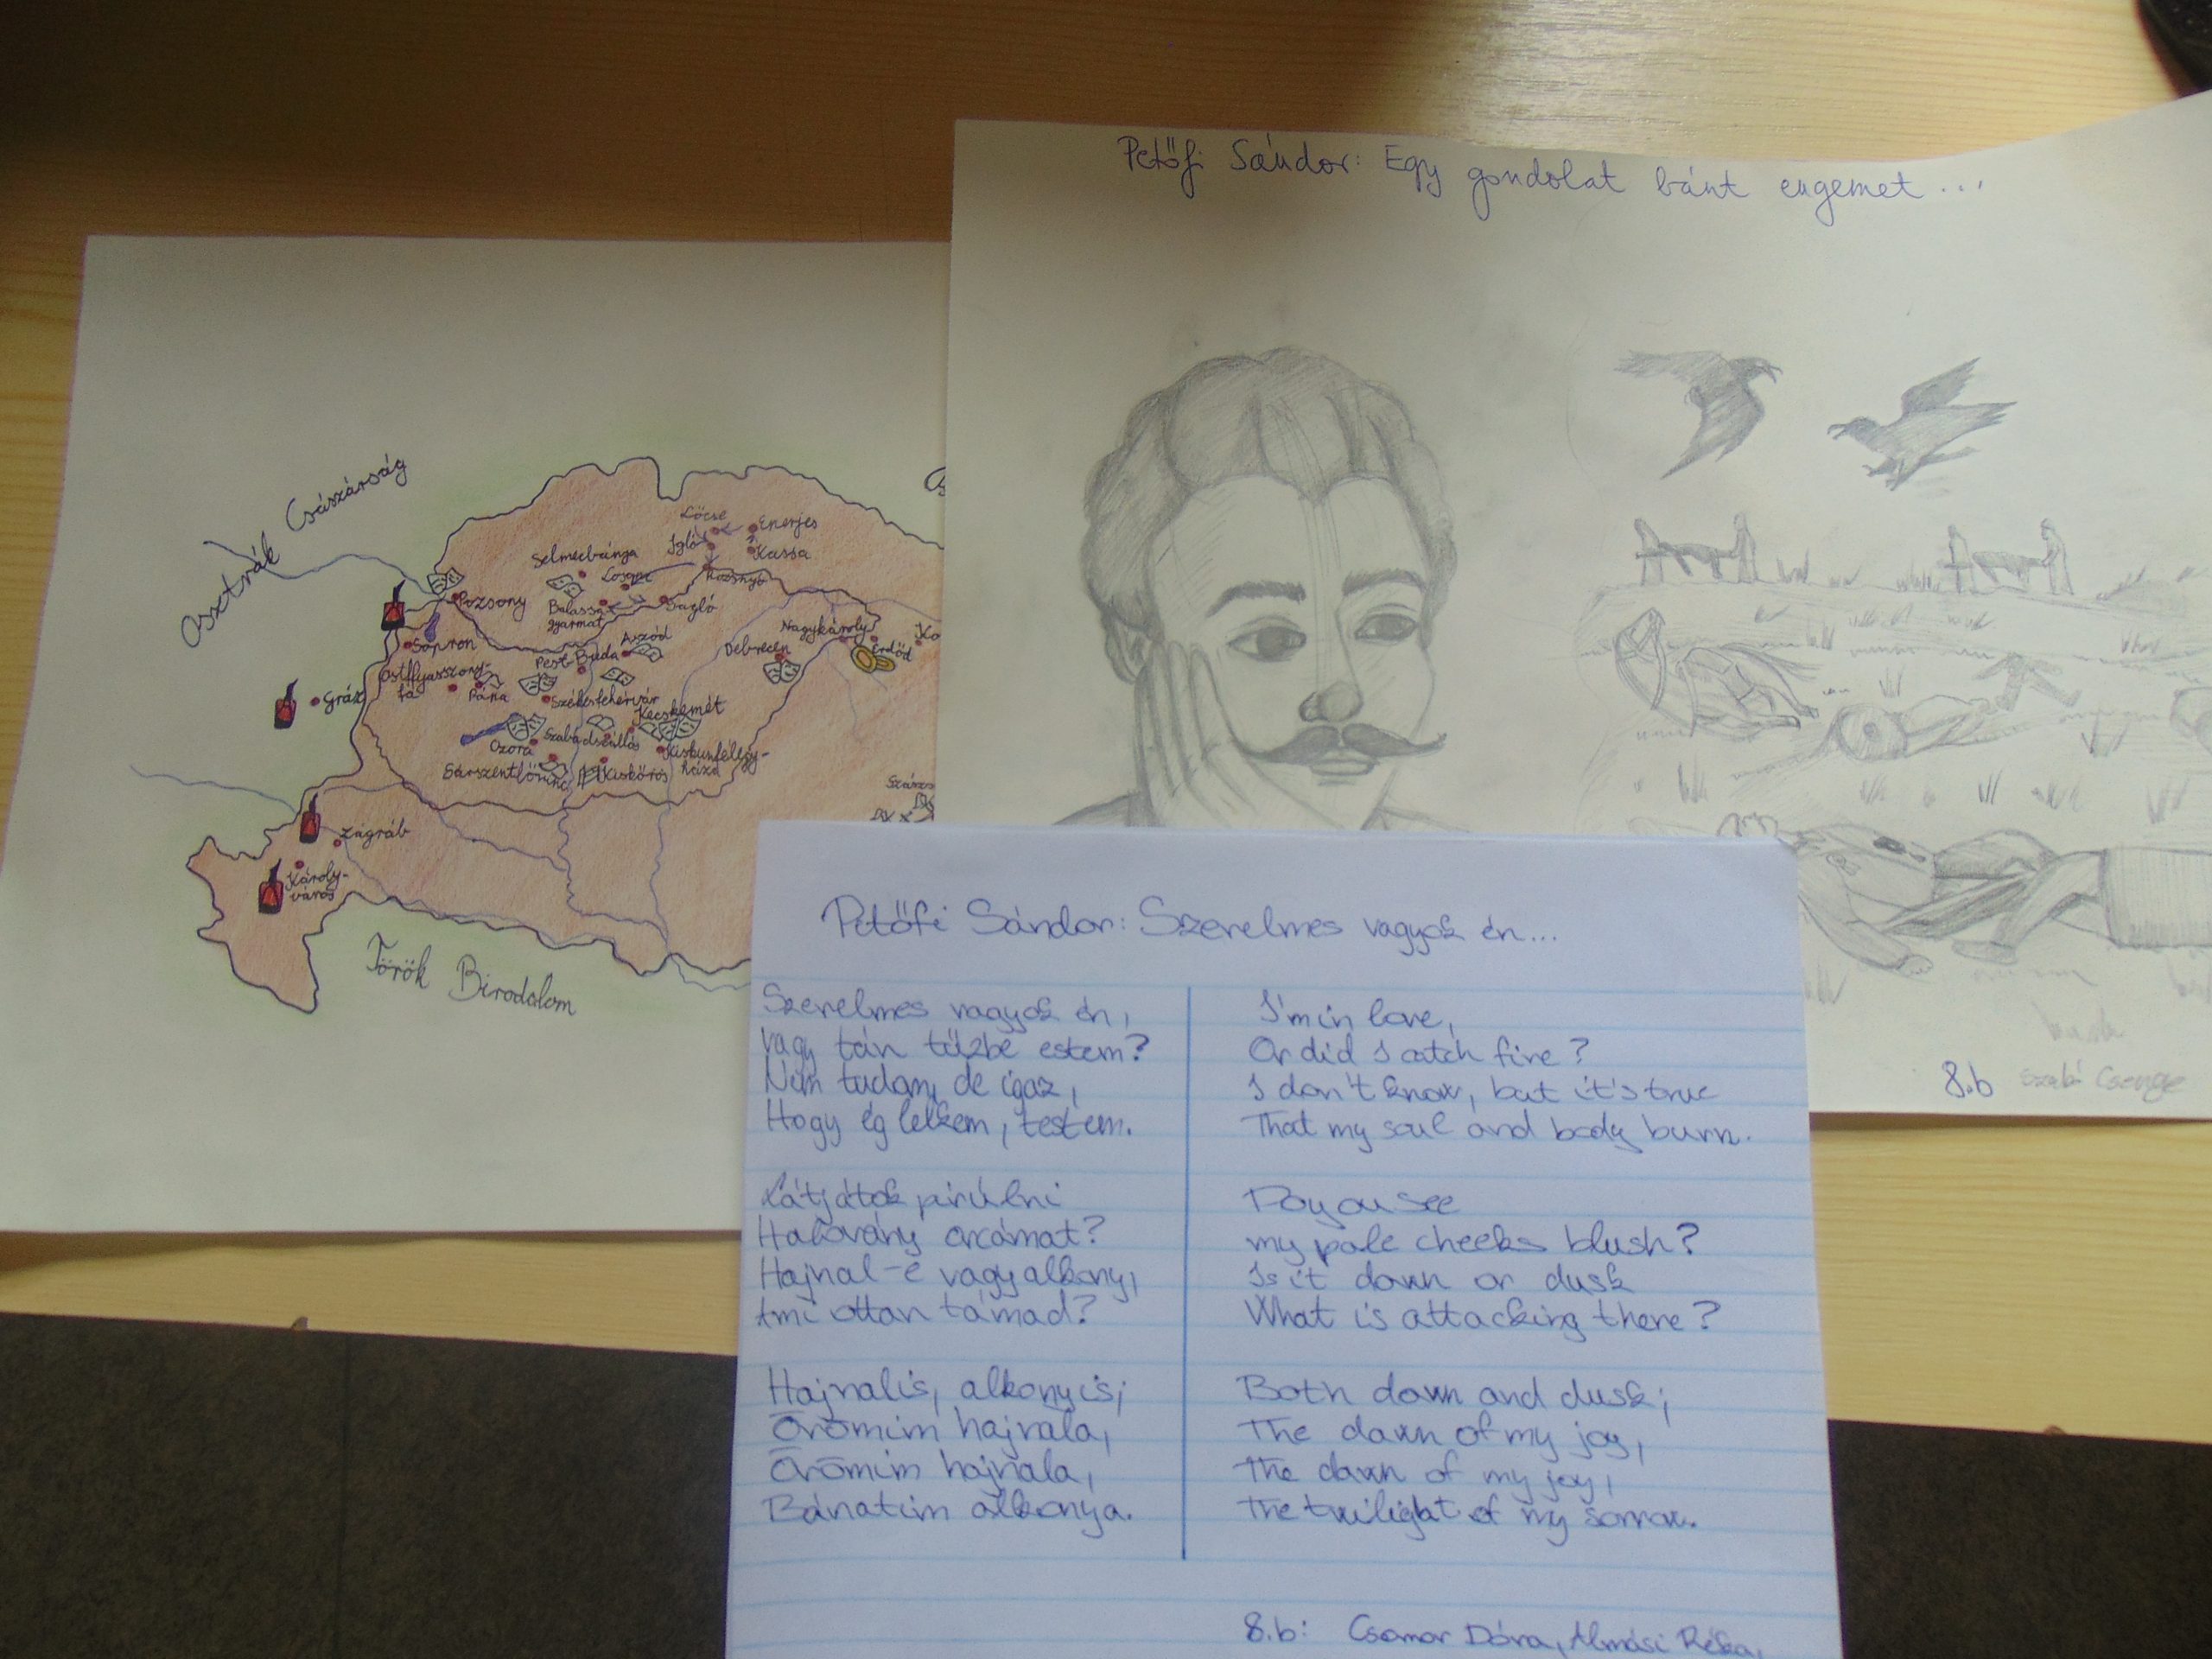 Petőfi Sándor: Egy gondolat bánt engemet...
Osztrák Császárság
Lőcse
Eperjes
Igló
Kassa
Selmecbánya
Losonc
Rozsnyó
Pozsony
Balassa
gyarmat
Sopron
Aszód
Nagykároly
Ko
Pest-Buda
Debrecen
Erdőd
Ostffyasszony-
fa
Pápa
Gráz
Székesfehérvár
Kecskemét
Ozora
Szabadszállás
Kiskunfélegy-
háza
Sárszentlőrinc
Kiskőrös
Zágráb
Károly-
város
Török Birodalom
8.b Szabó Csenge
Petőfi Sándor: Szerelmes vagyok én...
Szerelmes vagyok én,
vagy tán tűzbe estem?
Nem tudom, de igaz,
Hogy ég lelkem, testem.
Látjátok pirúlni
Halovány orcámat?
Hajnal-e vagy alkony,
Ami ottan támad?
Hajnal is, alkony is;
Örömim hajnala,
Örömim hajnala,
Bánatim alkonya.
I'm in love,
Or did I catch fire?
I don't know, but it's true
That my soul and body burn.
Do you see
my pale cheeks blush?
Is it dawn or dusk
What is attacking there?
Both dawn and dusk;
The dawn of my joy,
The dawn of my joy,
The twilight of my sorrow.
8.b: Csomor Dóra, Almási Réka,